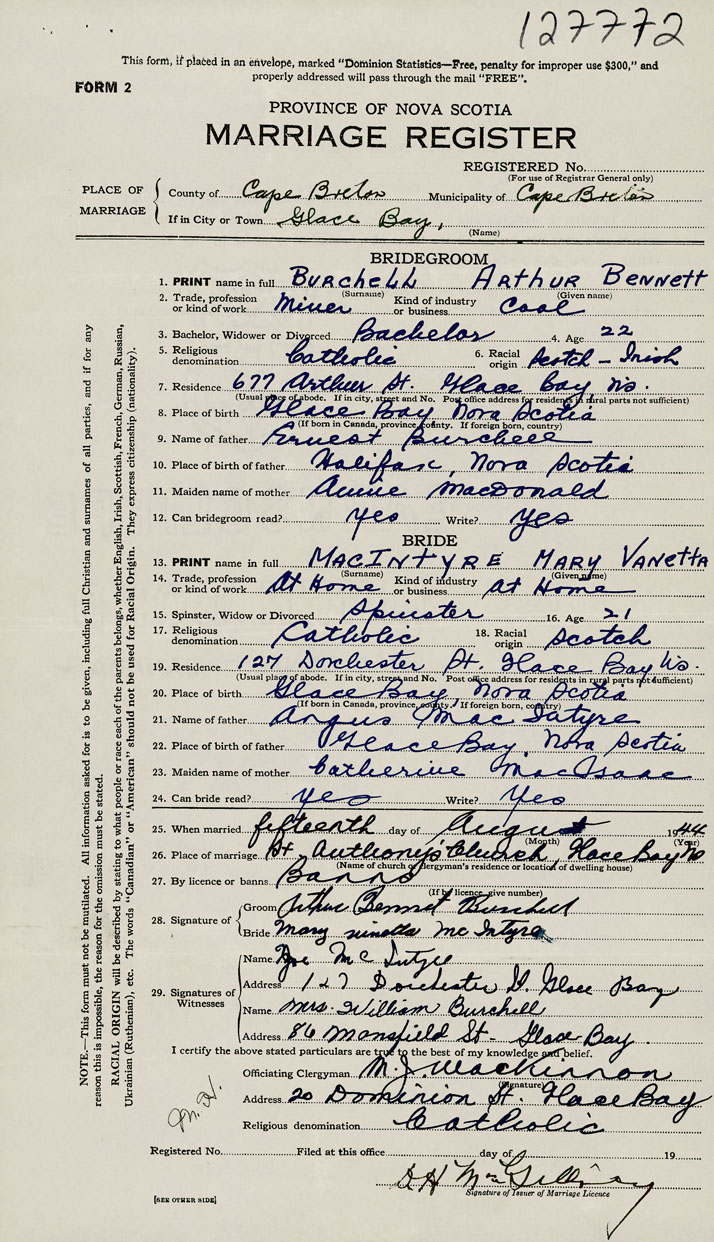 127772
This form, if placed in an envelope, marked "Dominion Statistics—Free, penalty for improper use $300," and
properly addressed will pass through the mail "FREE".
FORM 2
PROVINCE OF NOVA SCOTIA
MARRIAGE REGISTER
REGISTERED No.
(For use of Registrar General only)
PLACE OF MARRIAGE
County of Cape Breton Municipality of Cape Breton
If in City or Town Glace Bay,
(Name)
BRIDEGROOM
1. PRINT name in full BURCHELL ARTHUR BENNETT
(Surname) (Given name)
2. Trade, profession or kind of work Miner Kind of industry or business Coal
3. Bachelor, Widower or Divorced Bachelor 4. Age 22
5. Religious denomination Catholic 6. Racial origin Scotch - Irish
7. Residence 677 Arthur St. Glace Bay N.S.
(Usual place of abode. If in city, street and No. Post office address for residents in rural parts not sufficient)
8. Place of birth Glace Bay Nova Scotia
(If born in Canada, province, county. If foreign born, country)
9. Name of father Ernest Burchell
10. Place of birth of father Halifax, Nova Scotia
11. Maiden name of mother Annie MacDonald
12. Can bridegroom read? yes Write? yes
BRIDE
13. PRINT name in full MACINTYRE MARY VANETTA
(Surname) (Given name)
14. Trade, profession or kind of work At Home Kind of industry or business at Home
15. Spinster, Widow or Divorced Spinster 16. Age 21
17. Religious denomination Catholic 18. Racial origin Scotch
19. Residence 127 Dorchester St. Glace Bay N.S.
(Usual place of abode. If in city, street and No. Post office address for residents in rural parts not sufficient)
20. Place of birth Glace Bay, Nova Scotia
(If born in Canada, province, county. If foreign born, country)
21. Name of father Angus MacIntyre
22. Place of birth of father Glace Bay, Nova Scotia
23. Maiden name of mother Catherine MacIsaac
24. Can bride read? yes Write? Yes
25. When married fifteenth day of August 1944
(Month) (Year)
26. Place of marriage St. Anthony's Church, Glace Bay NS
(Name of church or clergyman's residence or location of dwelling house)
27. By licence or banns Banns
(If by licence, give number)
28. Signature of
Groom Arthur Bennet Burchell
Bride Mary McIntyre
29. Signatures of Witnesses
Name Joe McIntyre
Address 127 Dorchester St. Glace Bay
Name Mrs. William Burchell
Address 86 Mansfield St - Glace Bay.
I certify the above stated particulars are true to the best of my knowledge and belief.
Officiating Clergyman M. J. MacKinnon
(Signature)
Address 20 Dominion St. Glace Bay
Religious denomination Catholic
Registered No. Filed at this office day of 19
D H MacGillivray
Signature of Issuer of Marriage Licence
[SEE OTHER SIDE]
NOTE.—This form must not be mutilated. All information asked for is to be given, including full Christian and surnames of all parties, and if for any
reason this is impossible, the reason for the omission must be stated.
RACIAL ORIGIN will be described by stating to what people or race each of the parents belongs, whether English, Irish, Scottish, French, German, Russian,
Ukrainian (Ruthenian), etc. The words "Canadian" or "American" should not be used for Racial Origin. They express citizenship (nationality).